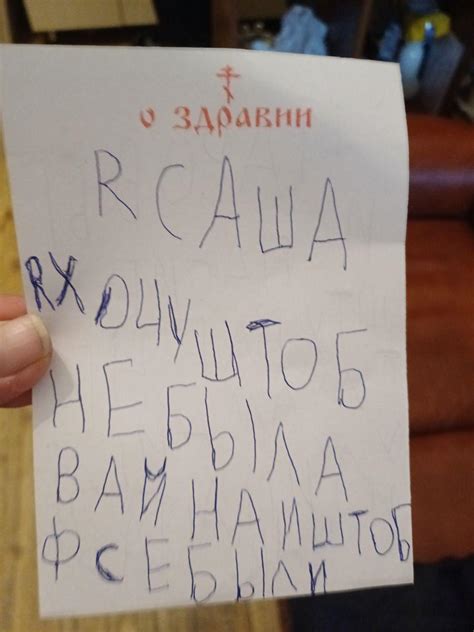 О ЗДРАВИИ
R САША
RХОЧУ ШТОБ
НЕ БЫЛА
ВАЙНА И ШТОБ
ФСЕ БЫЛИ